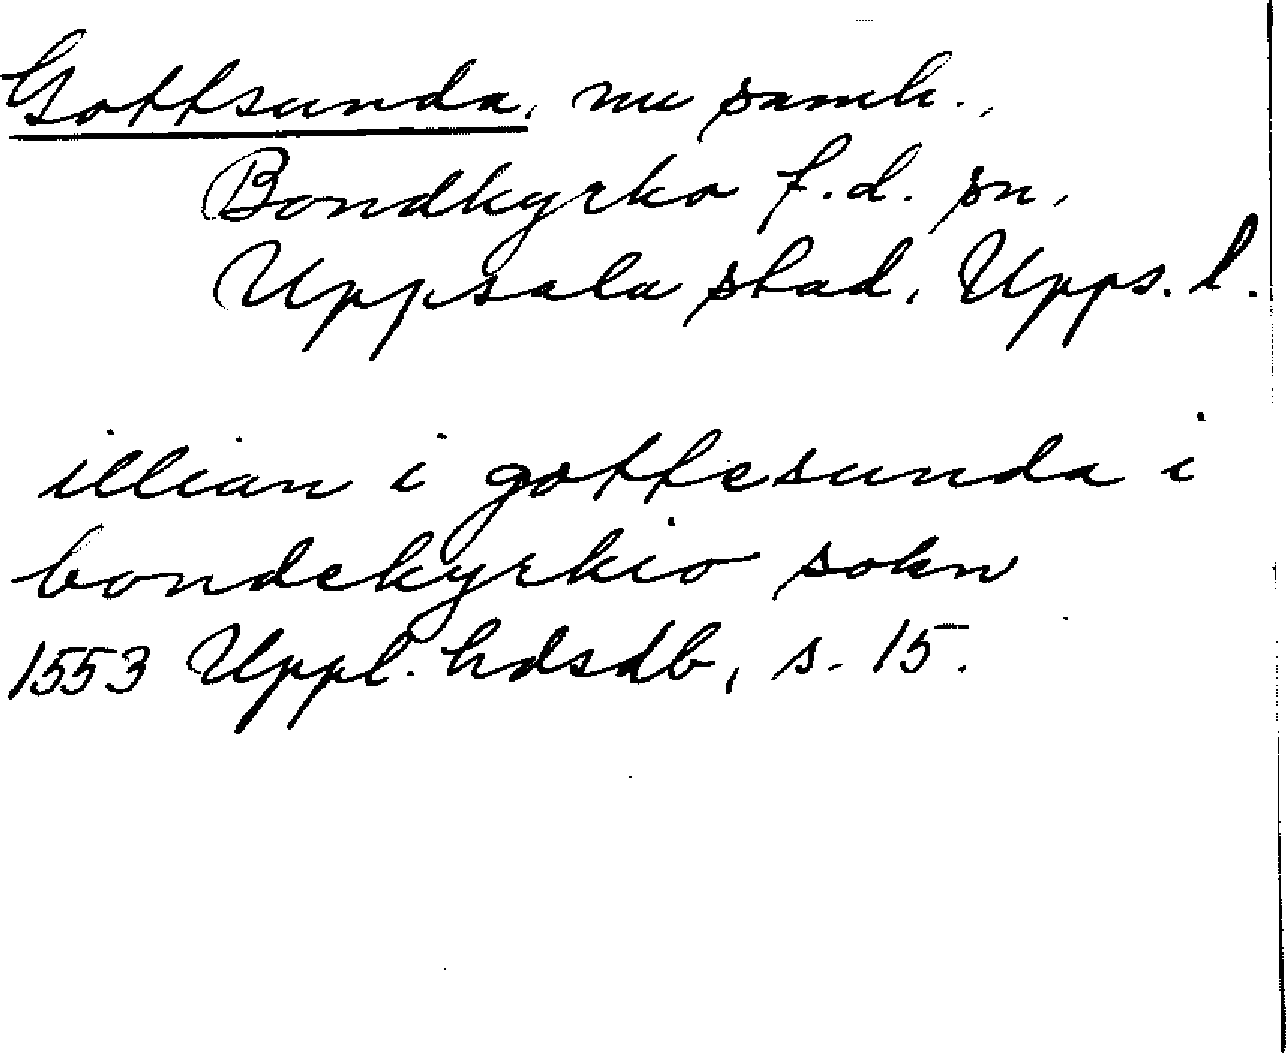 Gottsunda, nu samh.,
Bondkyrko f.d. sn,
Uppsala stad, Upps. l.
illian i gottesunda i
bondekyrkio sokn
1553 Uppl. hdsdb, s. 15.